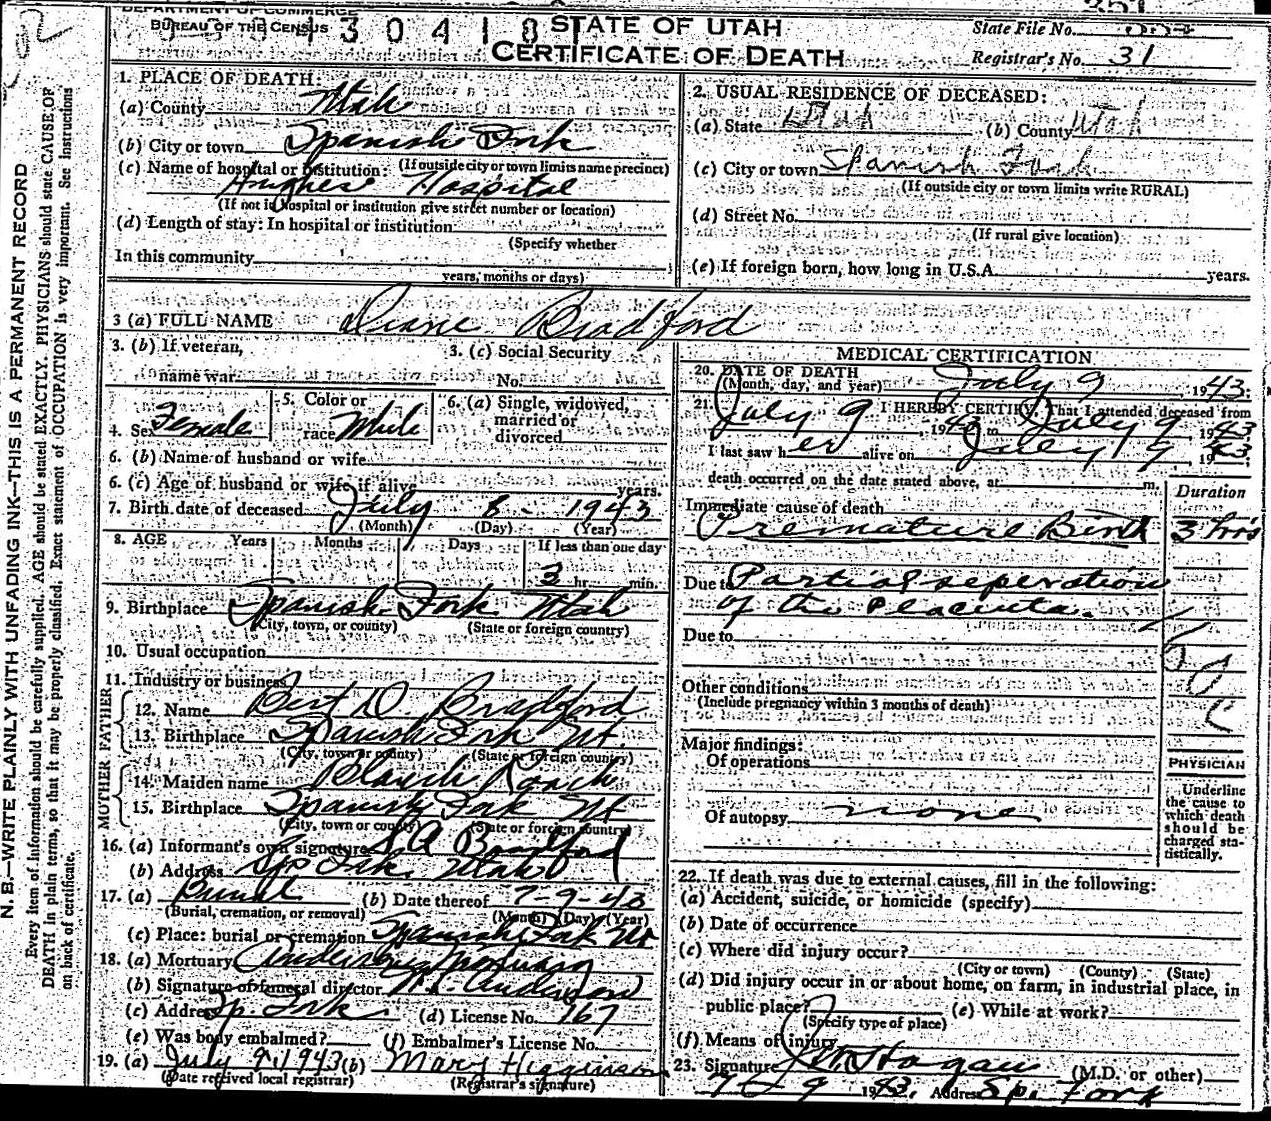 DEPARTMENT OF COMMERCE
BUREAU OF THE CENSUS
STATE OF UTAH
CERTIFICATE OF DEATH
State File No.
Registrar's No. 31
N. B.—WRITE PLAINLY WITH UNFADING INK—THIS IS A PERMANENT RECORD
Every item of information should be carefully supplied. AGE should be stated EXACTLY. PHYSICIANS should state CAUSE OF
DEATH in plain terms, so that it may be properly classified. Exact statement of OCCUPATION is very important. See Instructions
on back of certificate.
1. PLACE OF DEATH:
(a) County Utah
(b) City or town Spanish Fork
(If outside city or town limits name precinct)
(c) Name of hospital or institution:
Hughes Hospital
(If not in hospital or institution give street number or location)
(d) Length of stay: In hospital or institution
(Specify whether
In this community
years, months or days)
2. USUAL RESIDENCE OF DECEASED:
(a) State Utah (b) County Utah
(c) City or town Spanish Fork
(If outside city or town limits write RURAL.)
(d) Street No.
(If rural give location)
(e) If foreign born, how long in U.S.A. years.
3 (a) FULL NAME Diane Bradford
3. (b) If veteran,
name war
3. (c) Social Security
No.
4. Sex Female
5. Color or
race White
6. (a) Single, widowed,
married or
divorced
6. (b) Name of husband or wife
6. (c) Age of husband or wife if alive years.
7. Birth date of deceased July 8 - 1943
(Month) (Day) (Year)
8. AGE Years Months Days If less than one day
3 hr. min.
9. Birthplace Spanish Fork Utah
(City, town, or county) (State or foreign country)
10. Usual occupation
11. Industry or business
FATHER
12. Name Bert D. Bradford
13. Birthplace Spanish Fork Ut.
(City, town or county) (State or foreign country)
MOTHER
14. Maiden name Roach
15. Birthplace Spanish Fork Ut
(City, town or county) (State or foreign country)
16. (a) Informant's own signature Bradford
(b) Address Sp. Fork, Utah
17. (a) Burial (b) Date thereof 7-9-43
(Burial, cremation, or removal) (Month) (Day) (Year)
(c) Place: burial or cremation Spanish Fork Ut
18. (a) Mortuary Anderson Mortuary
(b) Signature of funeral director Anderson
(c) Address Sp. Fork. (d) License No. 167
(e) Was body embalmed? (f) Embalmer's License No.
19. (a) July 9, 1943 (b) Mary Higginson
(Date received local registrar) (Registrar's signature)
MEDICAL CERTIFICATION
20. DATE OF DEATH
(Month, day, and year) July 9 1943.
21. I HEREBY CERTIFY, That I attended deceased from
July 9, 1943 to July 9, 1943
I last saw her alive on July 9, 1943.
death occurred on the date stated above, at m.
Duration
Immediate cause of death
Premature Birth 3 hrs
Due to Partial seperation
of the placenta.
Due to
Other conditions
(Include pregnancy within 3 months of death)
Major findings:
Of operations
Of autopsy none
PHYSICIAN
Underline
the cause to
which death
should be
charged sta-
tistically.
22. If death was due to external causes, fill in the following:
(a) Accident, suicide, or homicide (specify)
(b) Date of occurrence
(c) Where did injury occur?
(City or town) (County) (State)
(d) Did injury occur in or about home, on farm, in industrial place, in
public place? (e) While at work?
(Specify type of place)
(f) Means of injury
23. Signature Hagan (M.D. or other)
7-9 1943. Address Sp. Fork